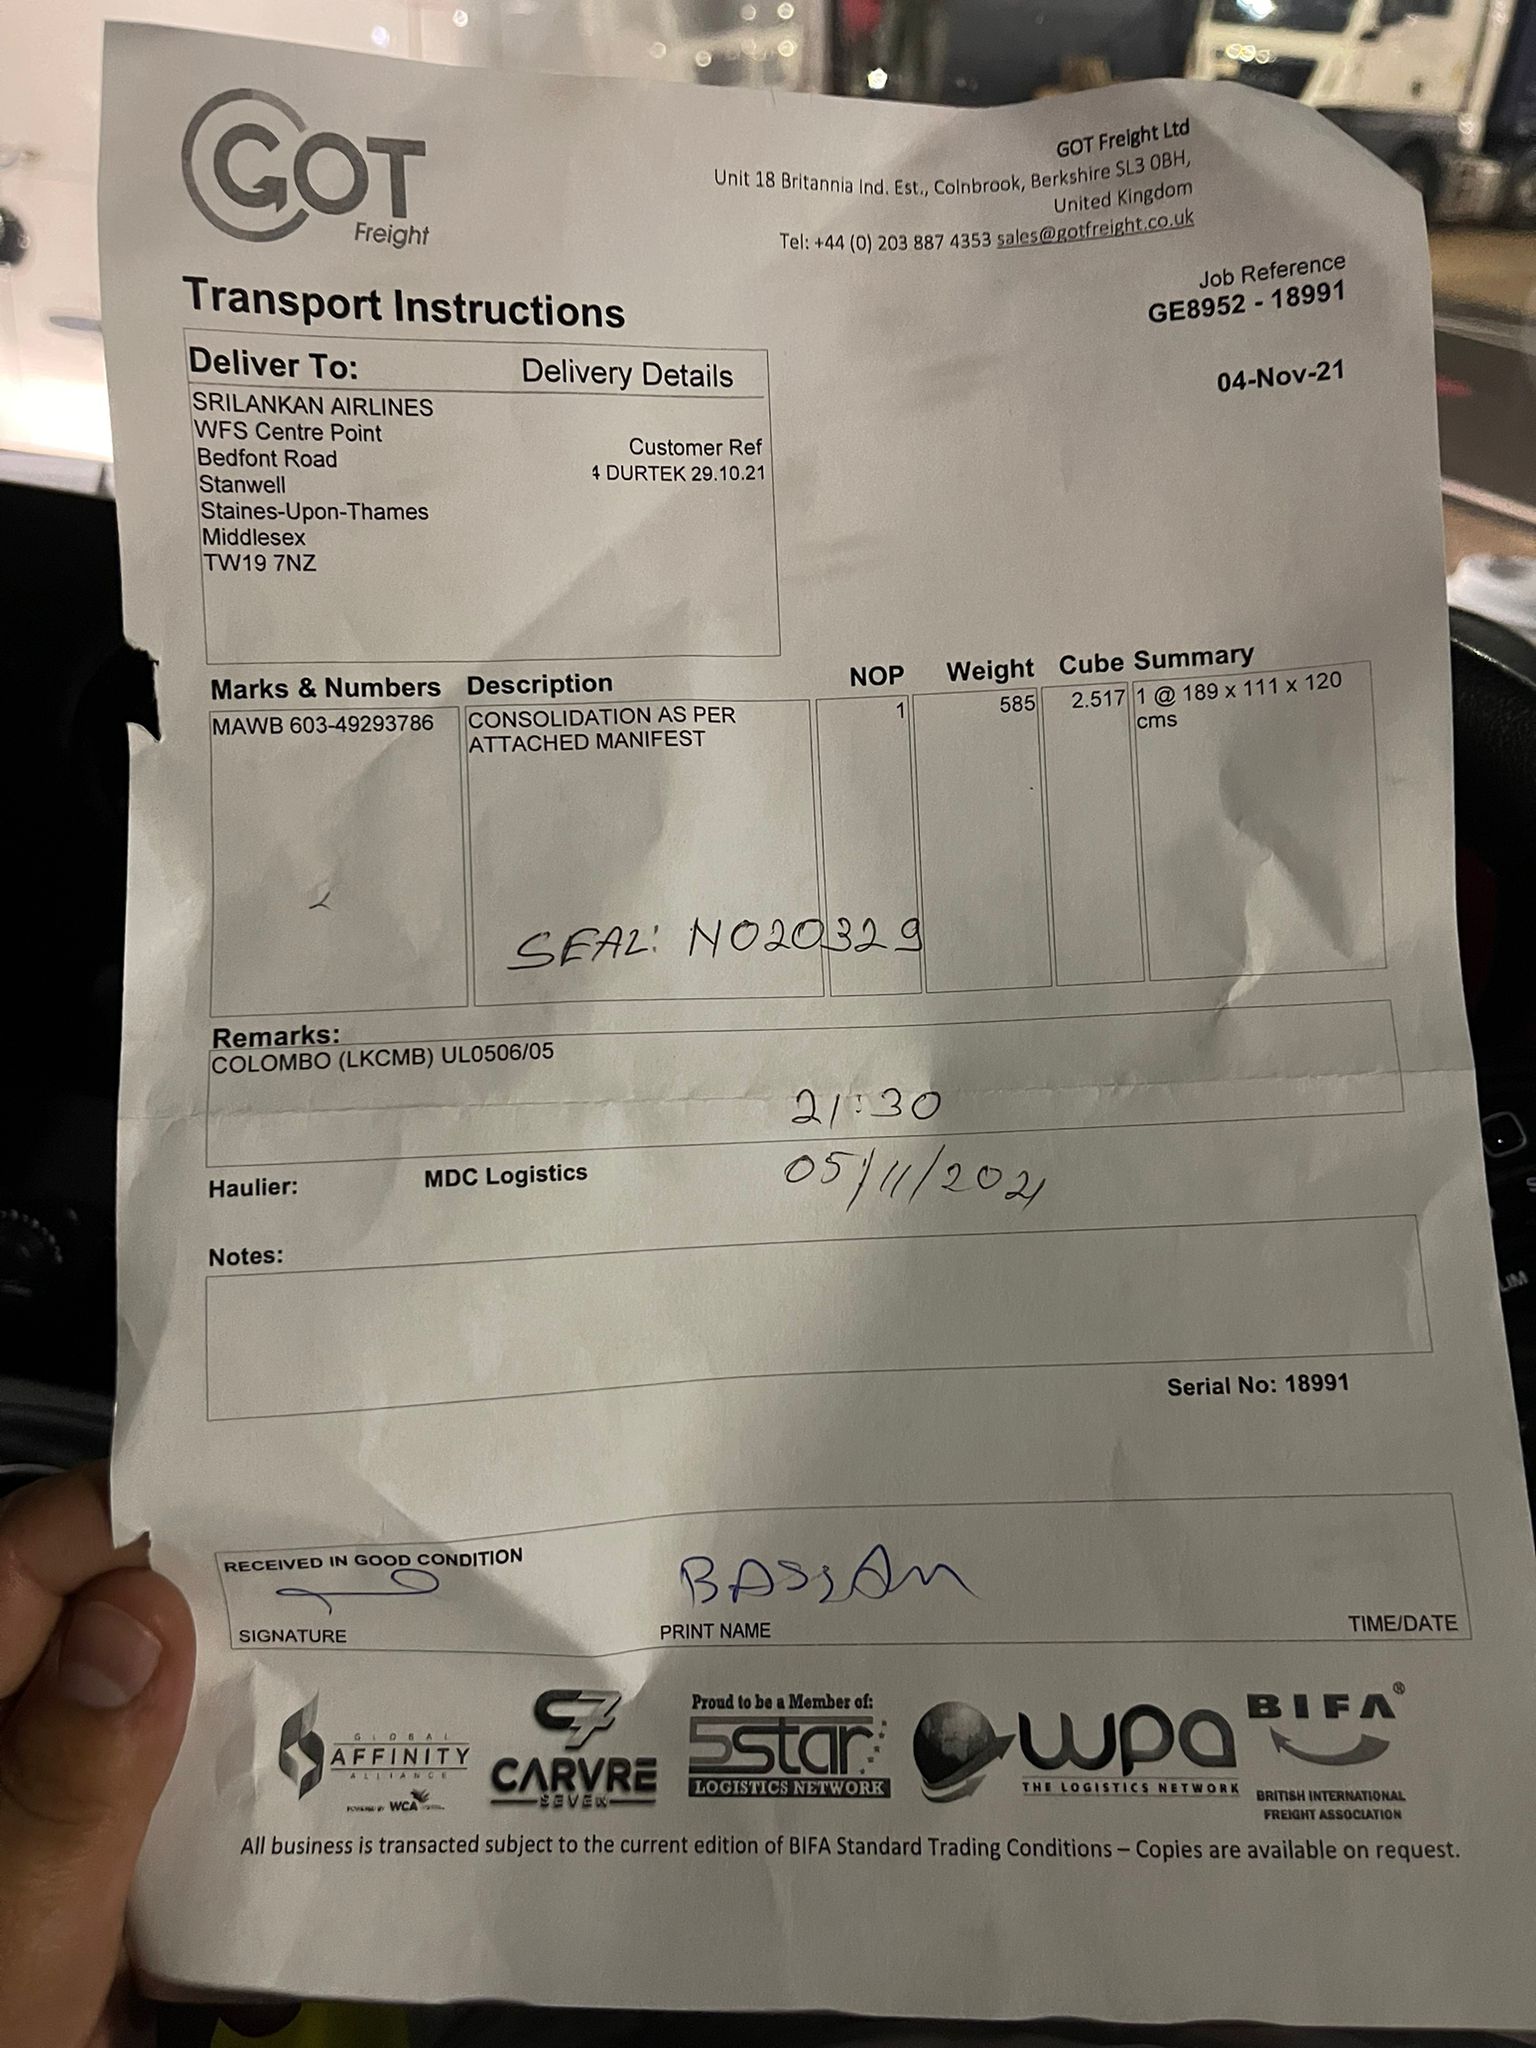 GOT
Freight
GOT Freight Ltd
Unit 18 Britannia Ind. Est., Colnbrook, Berkshire SL3 0BH,
United Kingdom
Tel: +44 (0) 203 887 4353 sales@gotfreight.co.uk
Transport Instructions
Job Reference
GE8952 - 18991
04-Nov-21
Deliver To: Delivery Details
SRILANKAN AIRLINES
WFS Centre Point
Bedfont Road
Stanwell
Staines-Upon-Thames
Middlesex
TW19 7NZ
Customer Ref
4 DURTEK 29.10.21
Marks & Numbers Description NOP Weight Cube Summary
MAWB 603-49293786 CONSOLIDATION AS PER 1 585 2.517 1 @ 189 x 111 x 120
ATTACHED MANIFEST cms
SEAL: N020329
Remarks:
COLOMBO (LKCMB) UL0506/05
21:30
Haulier: MDC Logistics 05/11/2021
Notes:
Serial No: 18991
RECEIVED IN GOOD CONDITION
SIGNATURE PRINT NAME TIME/DATE
GLOBAL
AFFINITY
ALLIANCE
POWERED BY WCA
C7
CARVRE
SEVEN
Proud to be a Member of:
5star
LOGISTICS NETWORK
wpa
THE LOGISTICS NETWORK
BIFA®
BRITISH INTERNATIONAL
FREIGHT ASSOCIATION
All business is transacted subject to the current edition of BIFA Standard Trading Conditions – Copies are available on request.